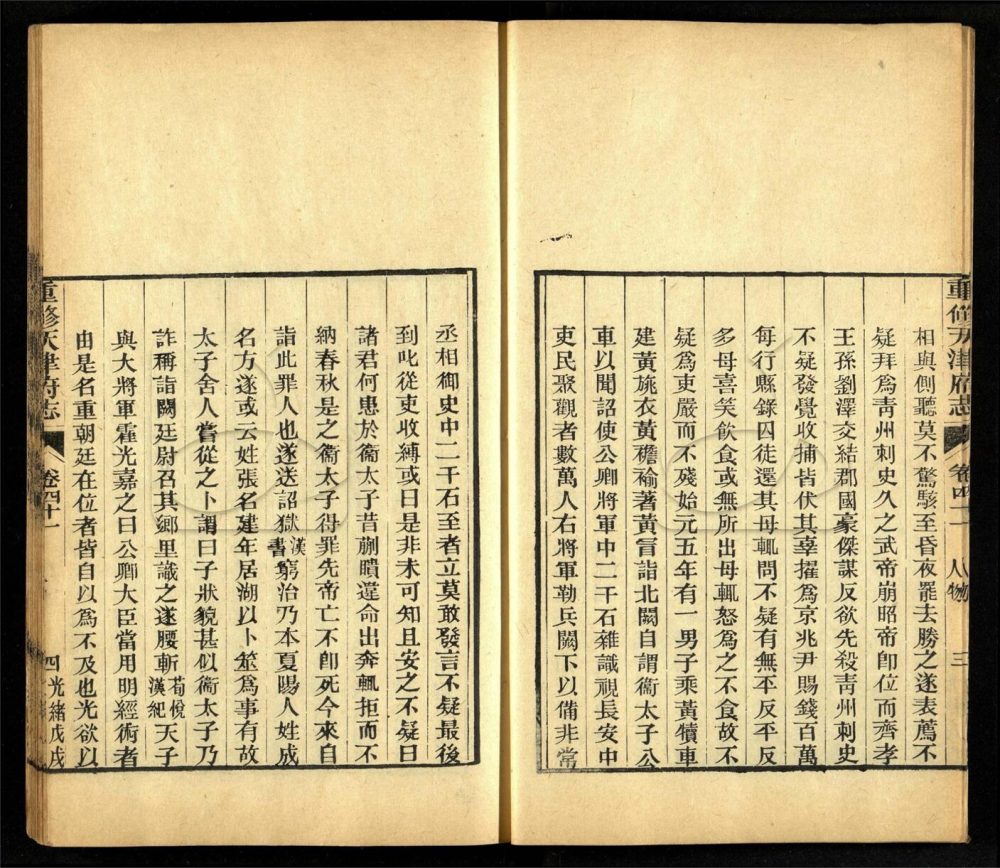 重修天津府志 卷四十一 人物 三
相與側聽莫不驚駭至昏夜罷去勝之遂表薦不
疑拜爲青州刺史久之武帝崩昭帝卽位而齊孝
王孫劉澤交結郡國豪傑謀反欲先殺青州刺史
不疑發覺收捕皆伏其辜擢爲京兆尹賜錢百萬
每行縣錄囚徒還其母輒問不疑有無平反平反
多母喜笑飲食或無所出母輒怒爲之不食故不
疑爲吏嚴而不殘始元五年有一男子乘黃犢車
建黃旐衣黃襜褕著黃冒詣北闕自謂衞太子公
車以聞詔使公卿將軍中二千石雜識視長安中
吏民聚觀者數萬人右將軍勒兵闕下以備非常
丞相御史中二千石至者立莫敢發言不疑最後
到叱從吏收縛或曰是非未可知且安之不疑曰
諸君何患於衞太子昔蒯瞶違命出奔輒拒而不
納春秋是之衞太子得罪先帝亡不卽死今來自
詣此罪人也遂送詔獄漢書窮治乃本夏陽人姓成
名方遂或云姓張名建年居湖以卜筮爲事有故
太子舍人嘗從之卜謂曰子狀貌甚似衞太子乃
詐稱詣闕廷尉召其鄉里識之遂腰斬荀悅漢紀天子
與大將軍霍光嘉之曰公卿大臣當用明經術者
由是名重朝廷在位者皆自以爲不及也光欲以
重修天津府志 卷四十一 四 光緒戊戌